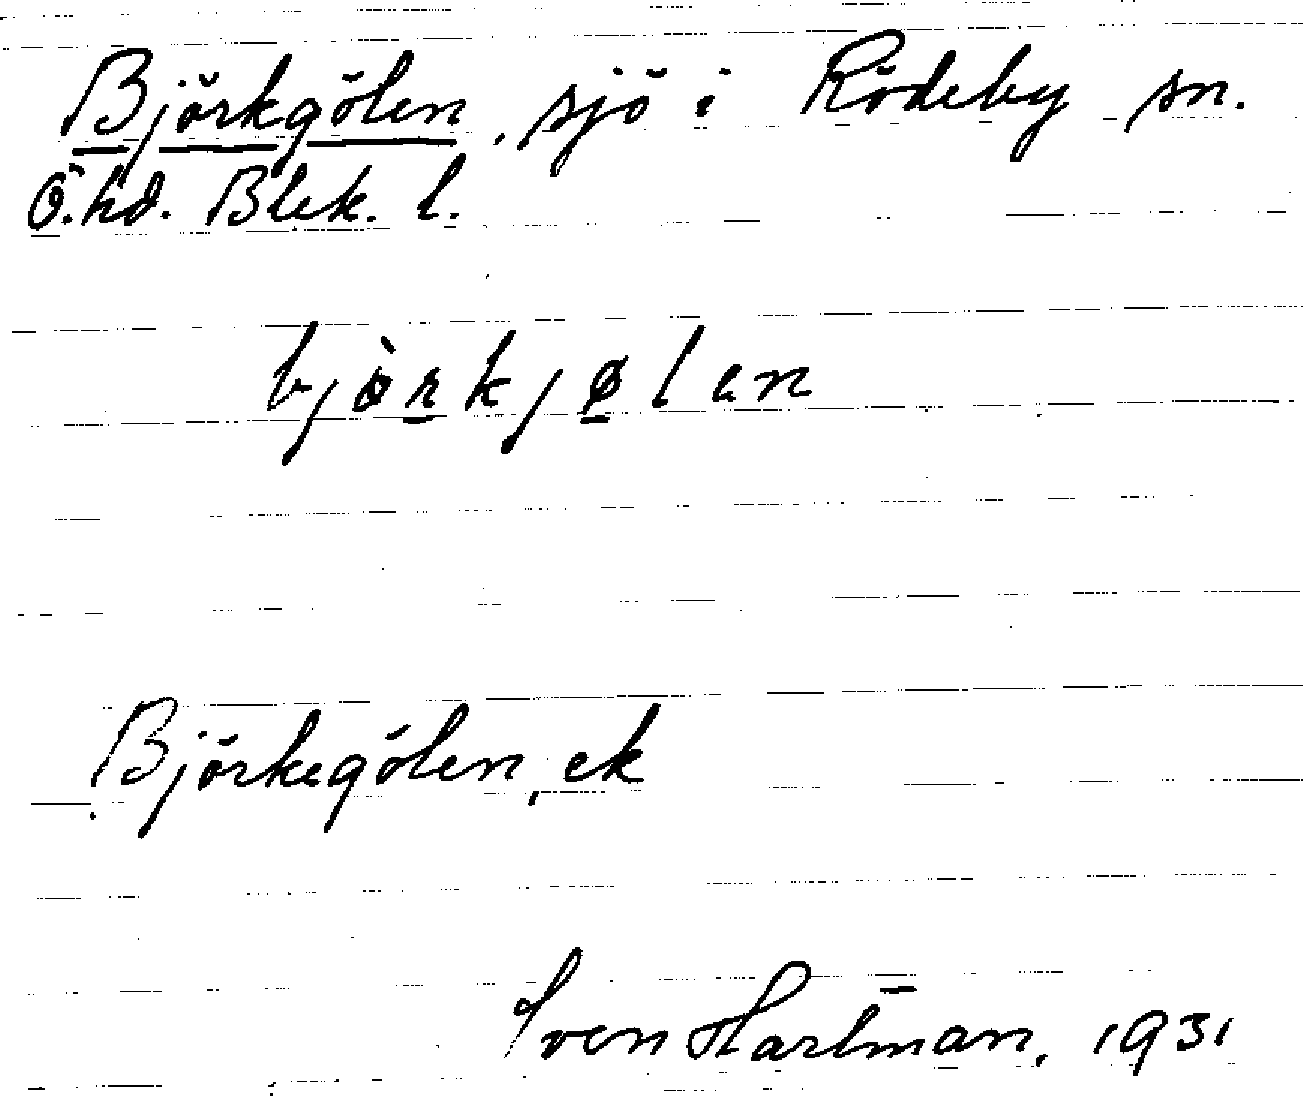 Björkgölen, sjö i Rödeby sn.
Ö. hd. Blek. l.
bjòrkjølen
Björkegölen, ek
Sven Hartman, 1931